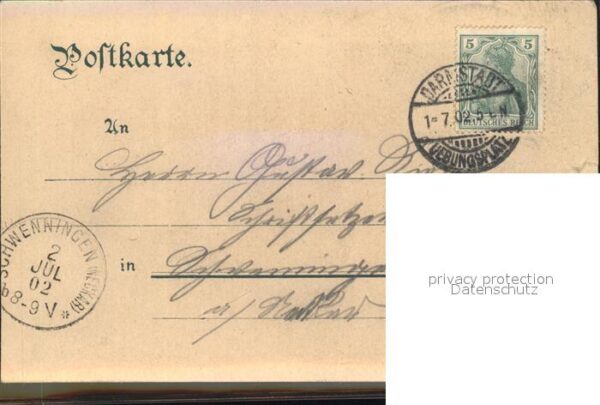 Postkarte.
5 5
DEUTSCHES REICH
DARMSTADT
1-7.02.5-6N
UEBUNGSPLATZ
An
Herrn Gustav
Schriftsetzer
in Schwenningen
a/ Neckar
SCHWENNINGEN (NECKAR)
2
JUL
02
8-9V
*
privacy protection
Datenschutz